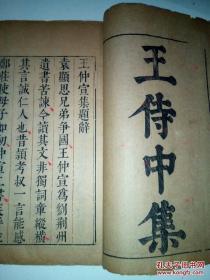 王侍中集
王仲宣集題辭
袁顯思兄弟爭國王仲宣為劉荆州
遺書苦諫今讀其文非獨詞章縱橫
其言誠仁人也昔頴考叔一言能感
鄭莊使母子如初仲宣二書